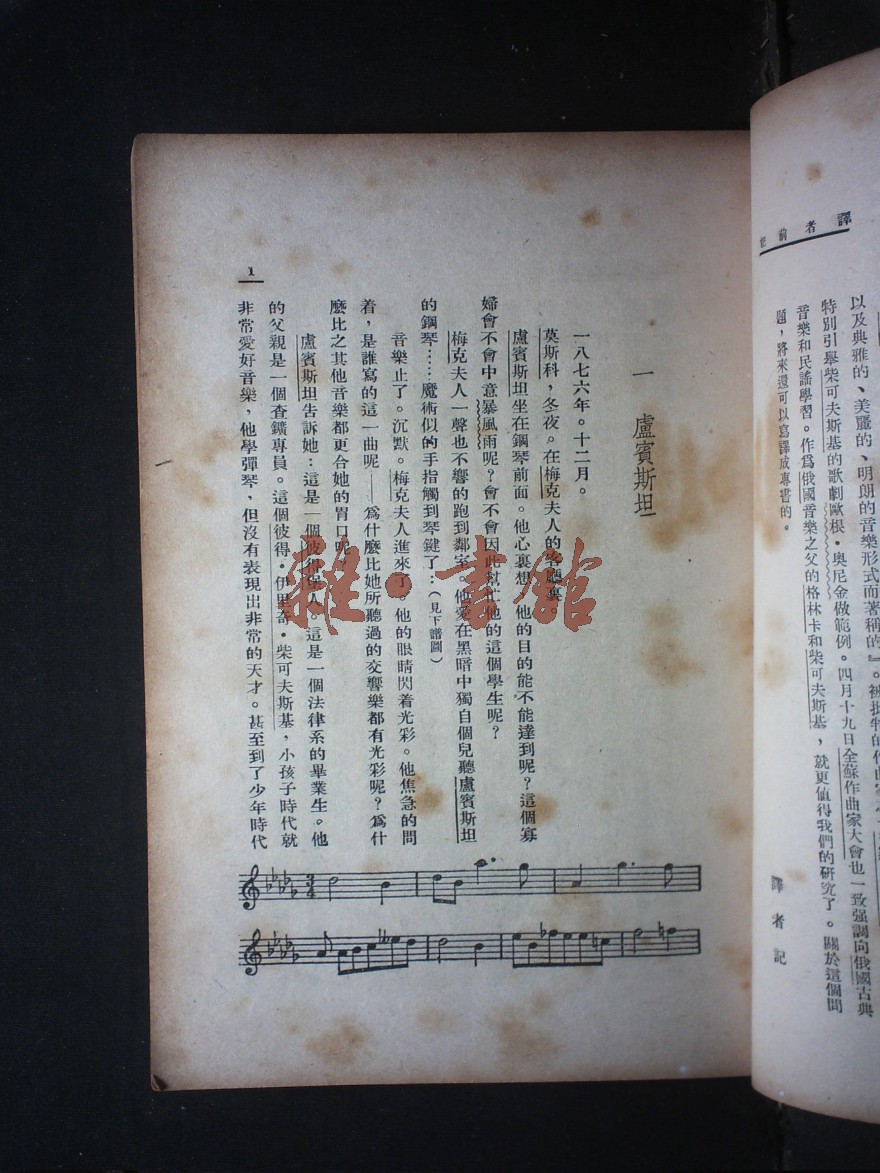 譯者前記
以及典雅的、美麗的、明朗的音樂形式而著稱的』。被批
特別引舉柴可夫斯基的歌劇歐根·奧尼金做範例。四月十九日全蘇作曲家大會也一致强調向俄國古典
音樂和民謠學習。作爲俄國音樂之父的格林卡和柴可夫斯基，就更值得我們的研究了。關於這個問
題，將來還可以寫譯成專書的。
譯者記
一 盧賓斯坦
一八七六年。十二月。
莫斯科，冬夜。在梅克夫人的客廳裏。
盧賓斯坦坐在鋼琴前面。他心裏想，他的目的能不能達到呢？這個寡
婦會不會中意暴風雨呢？會不會因此幫忙他的這個學生呢？
梅克夫人一聲也不響的跑到鄰室，他愛在黑暗中獨自個兒聽盧賓斯坦
的鋼琴……魔術似的手指觸到琴鍵了：（見下譜圖）
音樂止了。沉默。梅克夫人進來了，他的眼睛閃着光彩。他焦急的問
着，是誰寫的這一曲呢——爲什麽比她所聽過的交響樂都有光彩呢？爲什
麽比之其他音樂都更合她的胃口呢？
盧賓斯坦告訴她：這是一個彼得堡人。這是一個法律系的畢業生。他
的父親是一個查鑛專員。這個彼得·伊里奇·柴可夫斯基，小孩子時代就
非常愛好音樂，他學彈琴，但沒有表現出非常的天才。甚至到了少年時代
1
3
4
雜·書館